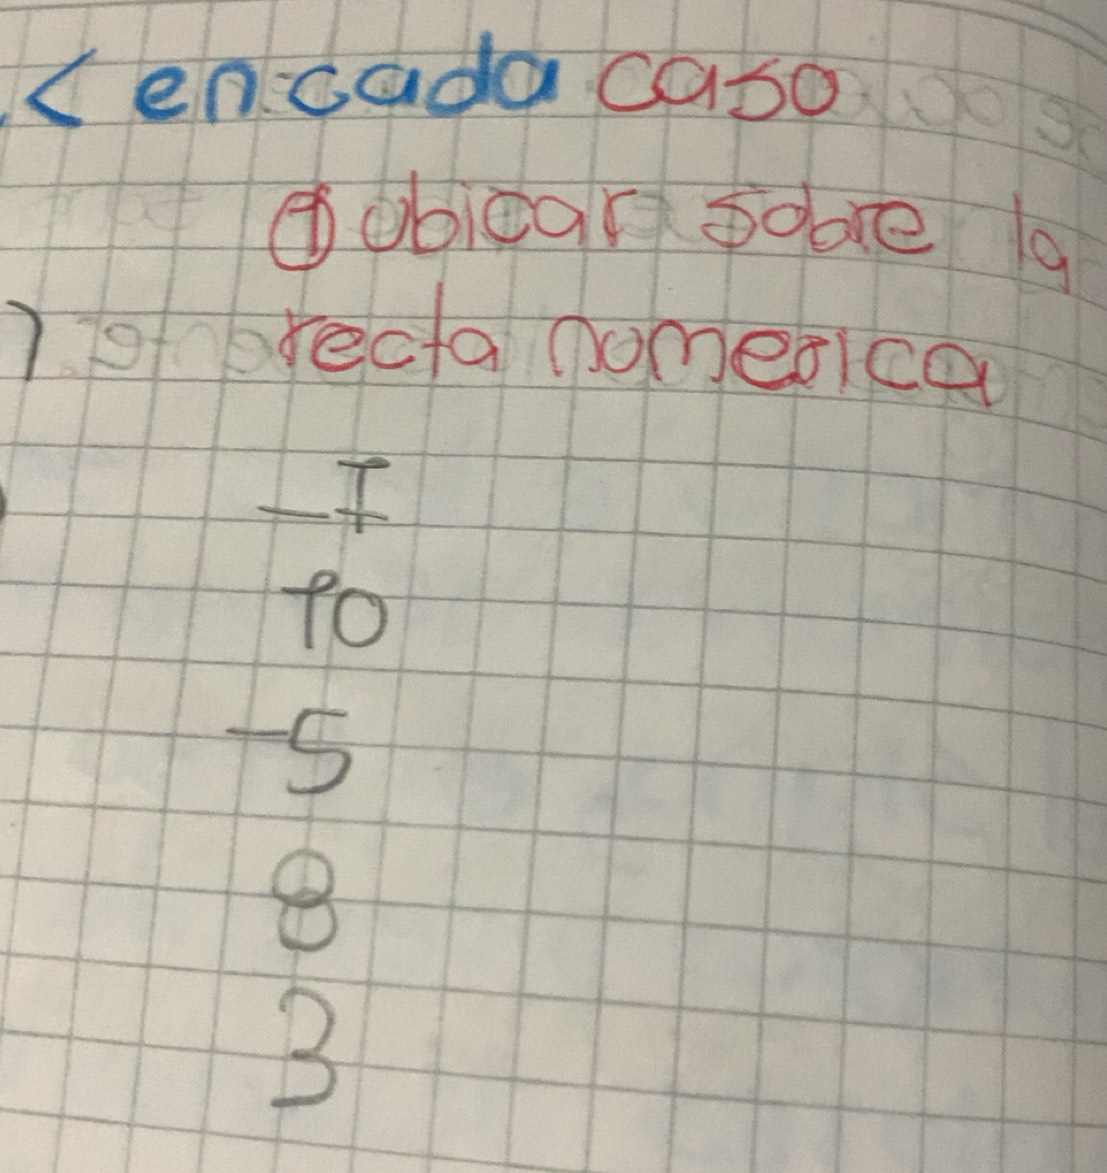 < en cada caso
① ubicar sobre la
) recta numerica
-1
10
-5
8
3